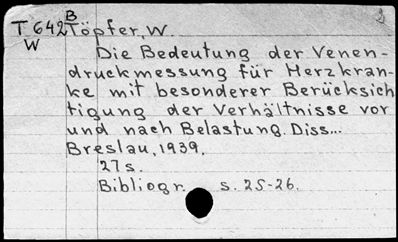 B
T 642 Töpfer, W.
W
Die Bedeutung der Venen-
druckmessung für Herzkran-
ke mit besonderer Berücksich
tigung der Verhältnisse vor
und nach Belastung. Diss...
Breslau, 1939.
27 s.
Bibliogr. s. 25-26.